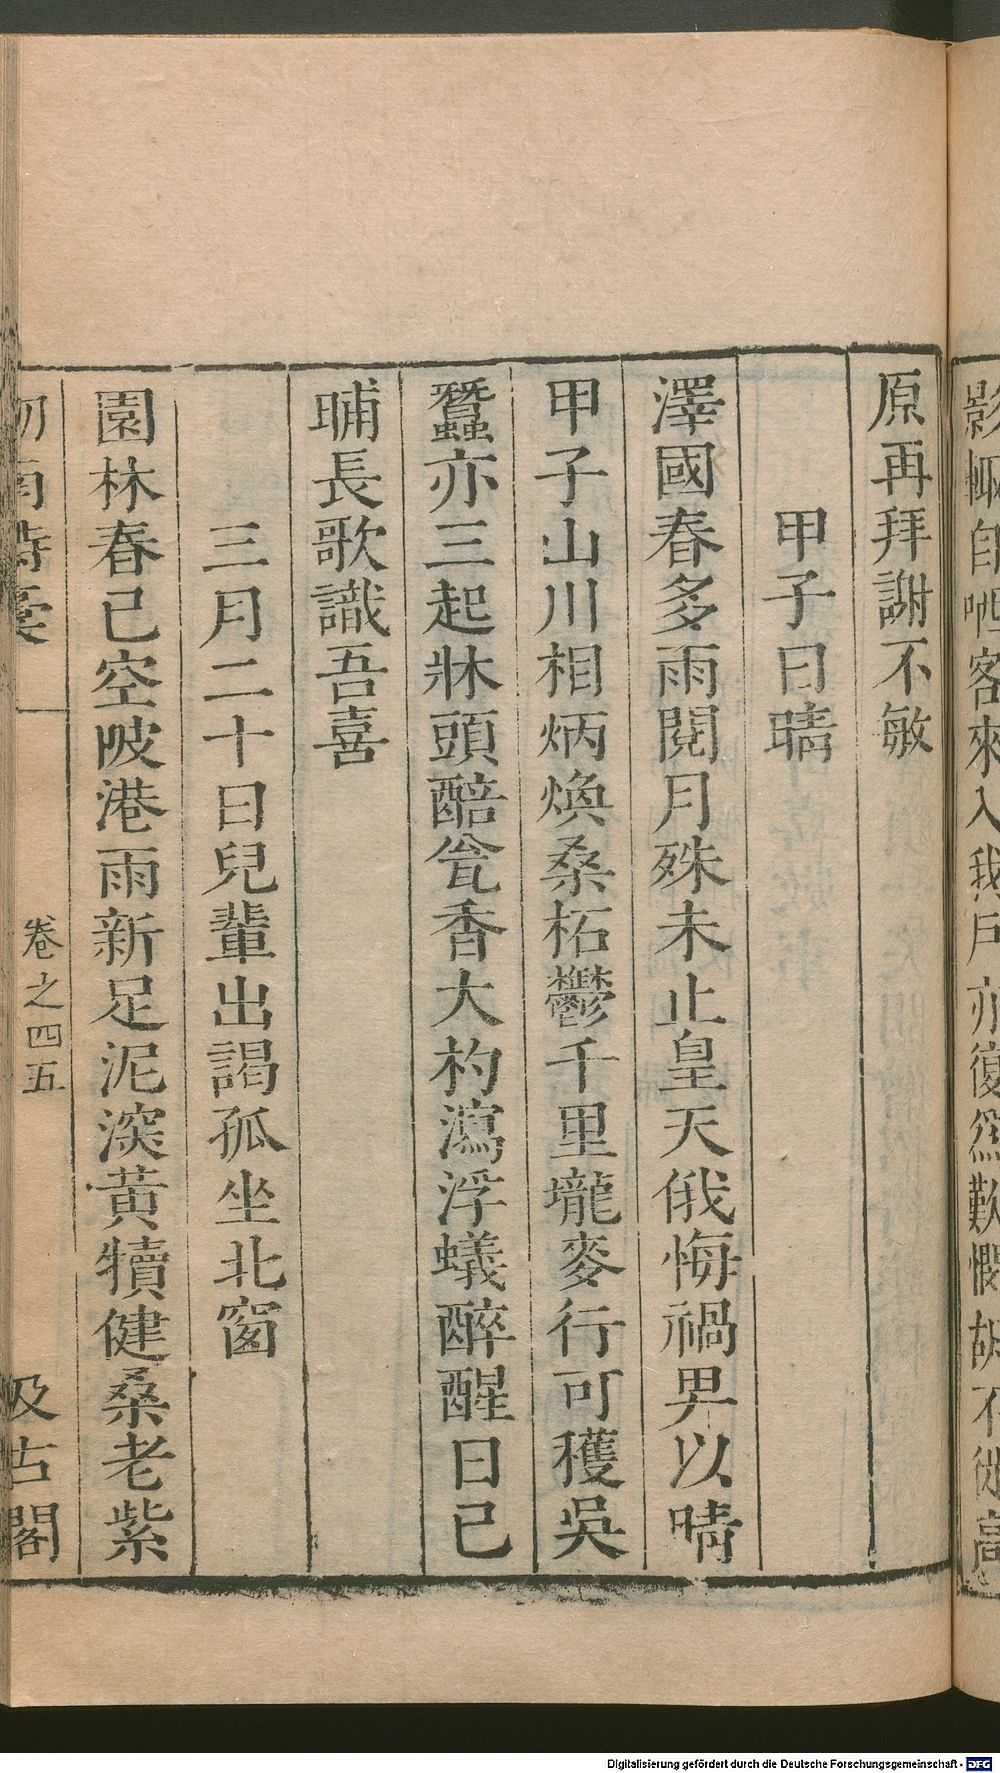 原再拜謝不敏
甲子日晴
澤國春多雨閱月殊未止皇天俄悔禍畀以晴
甲子山川相炳煥桑柘鬱千里壠麥行可穫吳
蠶亦三起牀頭醅瓮香大杓瀉浮蟻醉醒日已
晡長歌識吾喜
三月二十日兒輩出謁孤坐北窗
園林春已空陂港雨新足泥深黃犢健桑老紫
卷之四五
汲古閣
Digitalisierung gefördert durch die Deutsche Forschungsgemeinschaft - DFG